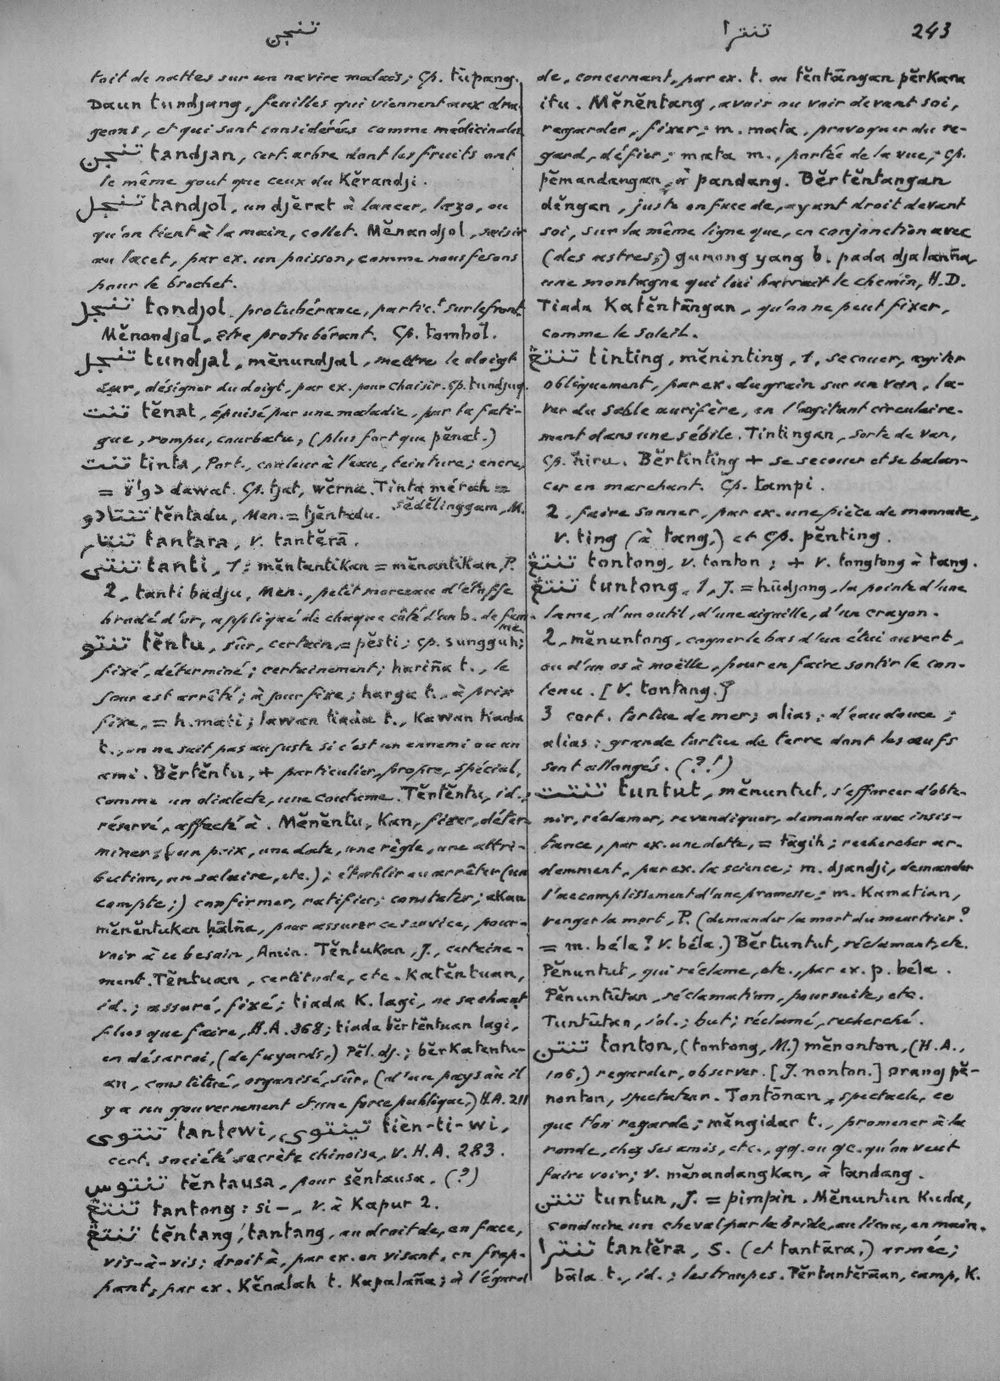 تنجن
تنترا
243
toit de nattes sur un navire malais; Cp. tūpang.
Daun tundjang, feuilles qui viennent aux dra-
geons, et qui sont considérées comme médicinales
تنجن tandjan, cert. arbre dont les fruits ont
le même gout que ceux du Kĕrandji.
تنجل tandjol, un djĕrat à lancer, lazo, ou
qu'on tient à la main, collet. Mĕnandjol, saisir
au lacet, par ex. un poisson, comme nous fesons
pour le brochet.
تنجل tondjol, protubérance, partic.t sur le front.
Mĕnondjol, être protubérant. Cp. tombol.
تنجل tundjal, mĕnundjal, mettre le doigt
sur, désigner du doigt, par ex. pour choisir. Cp. tundjuq.
تنت tĕnat, épuisé par une maladie, par la fati-
gue, rompu, courbatu, (plus fort que pĕnat.)
تنت tinta, Port., couleur à l'eau, teinture; encre,
= دواة dawat. Cp. tjat, wĕrna. Tinta mérah =
sĕdĕlinggam, M.
تنتادو tĕntadu, Men. = tjĕntadu.
تنتار tantara, v. tantĕrā.
تنتي tanti, 1: mĕntantiKan = mĕnantiKan, P.
2, tanti badju, Men., petit morceau d'étoffe
brodé d'or, appliqué de chaque côté d'un b. de fem-
me.
تنتو tĕntu, sûr, certain, = pĕsti; cp. sungguh;
fixé, déterminé; certainement; hariña t., le
jour est arrêté; à jour fixe; harga t., à prix
fixe, = h. mati; lawan tiada t., Kawan tiada
t., on ne sait pas au juste si c'est un ennemi ou un
ami. Bĕrtĕntu, + particulier, propre, spécial,
comme un dialecte, une coutume. Tĕntĕntu, id.;
réservé, affecté à. Mĕnĕntu, Kan, fixer, déter-
miner, (un prix, une date, une règle, une attri-
bution, un salaire, etc.); établir ou arrêter (un
compte;) confirmer, ratifier; constater; aKan
mĕnĕntuKan hālña, pour assurer ce service, pour-
voir à ce besoin, Amin. TĕntuKan, J., certaine-
ment. Tĕntuan, certitude, etc. Katĕntuan,
id.; assuré, fixé; tiada K. lagi, ne sachant
plus que faire, H.A. 368; tiada bĕrtĕntuan lagi,
en désarroi, (de fuyards,) Pĕl. dj.; bĕrKatentu-
an, constitué, organisé, sûr, (d'un pays où il
y a un gouvernement et une force publique,) H.A. 211
تنتوي tantewi, تينتوي tièn-ti-wi,
cert. société secrète chinoise, V. H.A. 283.
تنتوس tĕntausa, pour sĕntausa. (?)
تنتڠ tantong: si —, v. à Kapur 2.
تنتڠ tĕntang, tantang, au droit de, en face,
vis-à-vis; droit à, par ex. en visant, en frap-
pant, par ex. Kĕnalah t. Kapalaña; à l'égard
de, concernant, par ex. t. ou tĕntāngan pĕrKara
itu. Mĕnĕntang, avoir ou voir devant soi,
regarder, fixer; m. mata, provoquer du re-
gard, défier; mata m., portée de la vue; Cp.
pĕmandangan, à pandang. Bĕrtĕntangan
dĕngan, juste en face de, ayant droit devant
soi, sur la même ligne que, en conjonction avec
(des astres;) gunong yang b. pada djalanña,
une montagne qui lui barrait le chemin, H.D.
Tiada Katĕntāngan, qu'on ne peut fixer,
comme le soleil.
تنتڠ tinting, mĕninting, 1, secouer, agiter
obliquement, par ex. du grain sur un van, la-
ver du sable aurifère, en l'agitant circulaire-
ment dans une sébile. Tintingan, sorte de van,
Cp. ñiru. Bĕrtinting + se secouer et se balan-
cer en marchant. Cp. tampi.
2, faire sonner, par ex. une pièce de monnaie,
v. ting (à tang,) et Cp. pĕnting.
تنتڠ tontong, v. tonton; + v. tongtong à tang.
تنتڠ tuntong, 1, J. = hūdjong, la pointe d'une
lame, d'un outil, d'une aiguille, d'un crayon.
2, mĕnuntong, cogner le bas d'un étui ouvert,
ou d'un os à moëlle, pour en faire sortir le con-
tenu. [V. tontang.]
3 cert. tortue de mer; alias: d'eau douce;
alias: grande tortue de terre dont les œufs
sont allongés. (?!)
تنتت tuntut, mĕnuntut, s'efforcer d'obte-
nir, réclamer, revendiquer, demander avec insis-
tance, par ex. une dette, = tāgih; rechercher ar-
demment, par ex. la science; m. djandji, demander
l'accomplissement d'une promesse; m. Kamatian,
venger la mort, P. (demander la mort du meurtrier?
= m. béla? v. béla.) Bĕrtuntut, réclamant, etc.
Pĕnuntut, qui réclame, etc., par ex. p. béla.
Pĕnuntūtan, réclamation, poursuite, etc.
Tuntūtan, id.; but; réclamé, recherché.
تنتن tonton, (tontong, M.) mĕnonton, (H.A.,
106,) regarder, observer. [J. nonton.] orang pĕ-
nonton, spectateur. Tontōnan, spectacle, ce
que l'on regarde; mĕngidar t., promener à la
ronde, chez ses amis, etc., qq. ou qc. qu'on veut
faire voir; v. mĕnandangKan, à tandang.
تنتن tuntun, J. = pimpin. Mĕnuntun Kuda,
conduire un cheval par la bride, au lieu, en main.
تنترا tantĕra, S. (et tantāra,) armée;
bāla t., id.; les troupes. Pĕrtantĕrāan, camp, K.